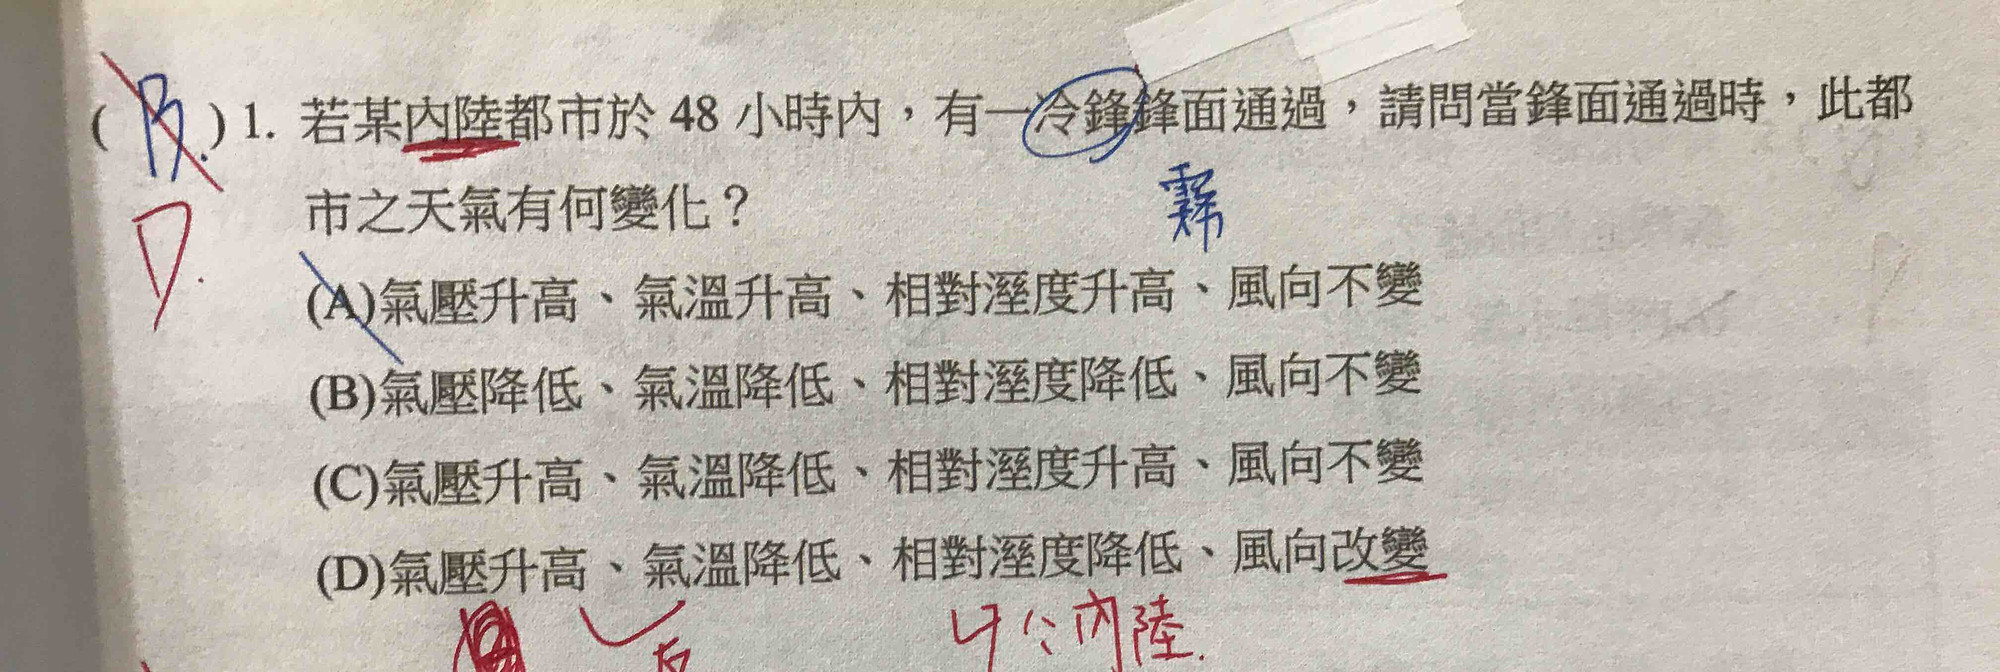 ( B. ) 1. 若某內陸都市於 48 小時內，有一冷鋒鋒面通過，請問當鋒面通過時，此都
D. 市之天氣有何變化？
(A)氣壓升高、氣溫升高、相對溼度升高、風向不變
(B)氣壓降低、氣溫降低、相對溼度降低、風向不變
(C)氣壓升高、氣溫降低、相對溼度升高、風向不變
(D)氣壓升高、氣溫降低、相對溼度降低、風向改變
∵內陸.